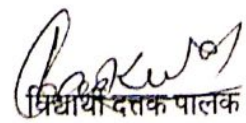 विद्यार्थी दत्तक पालक